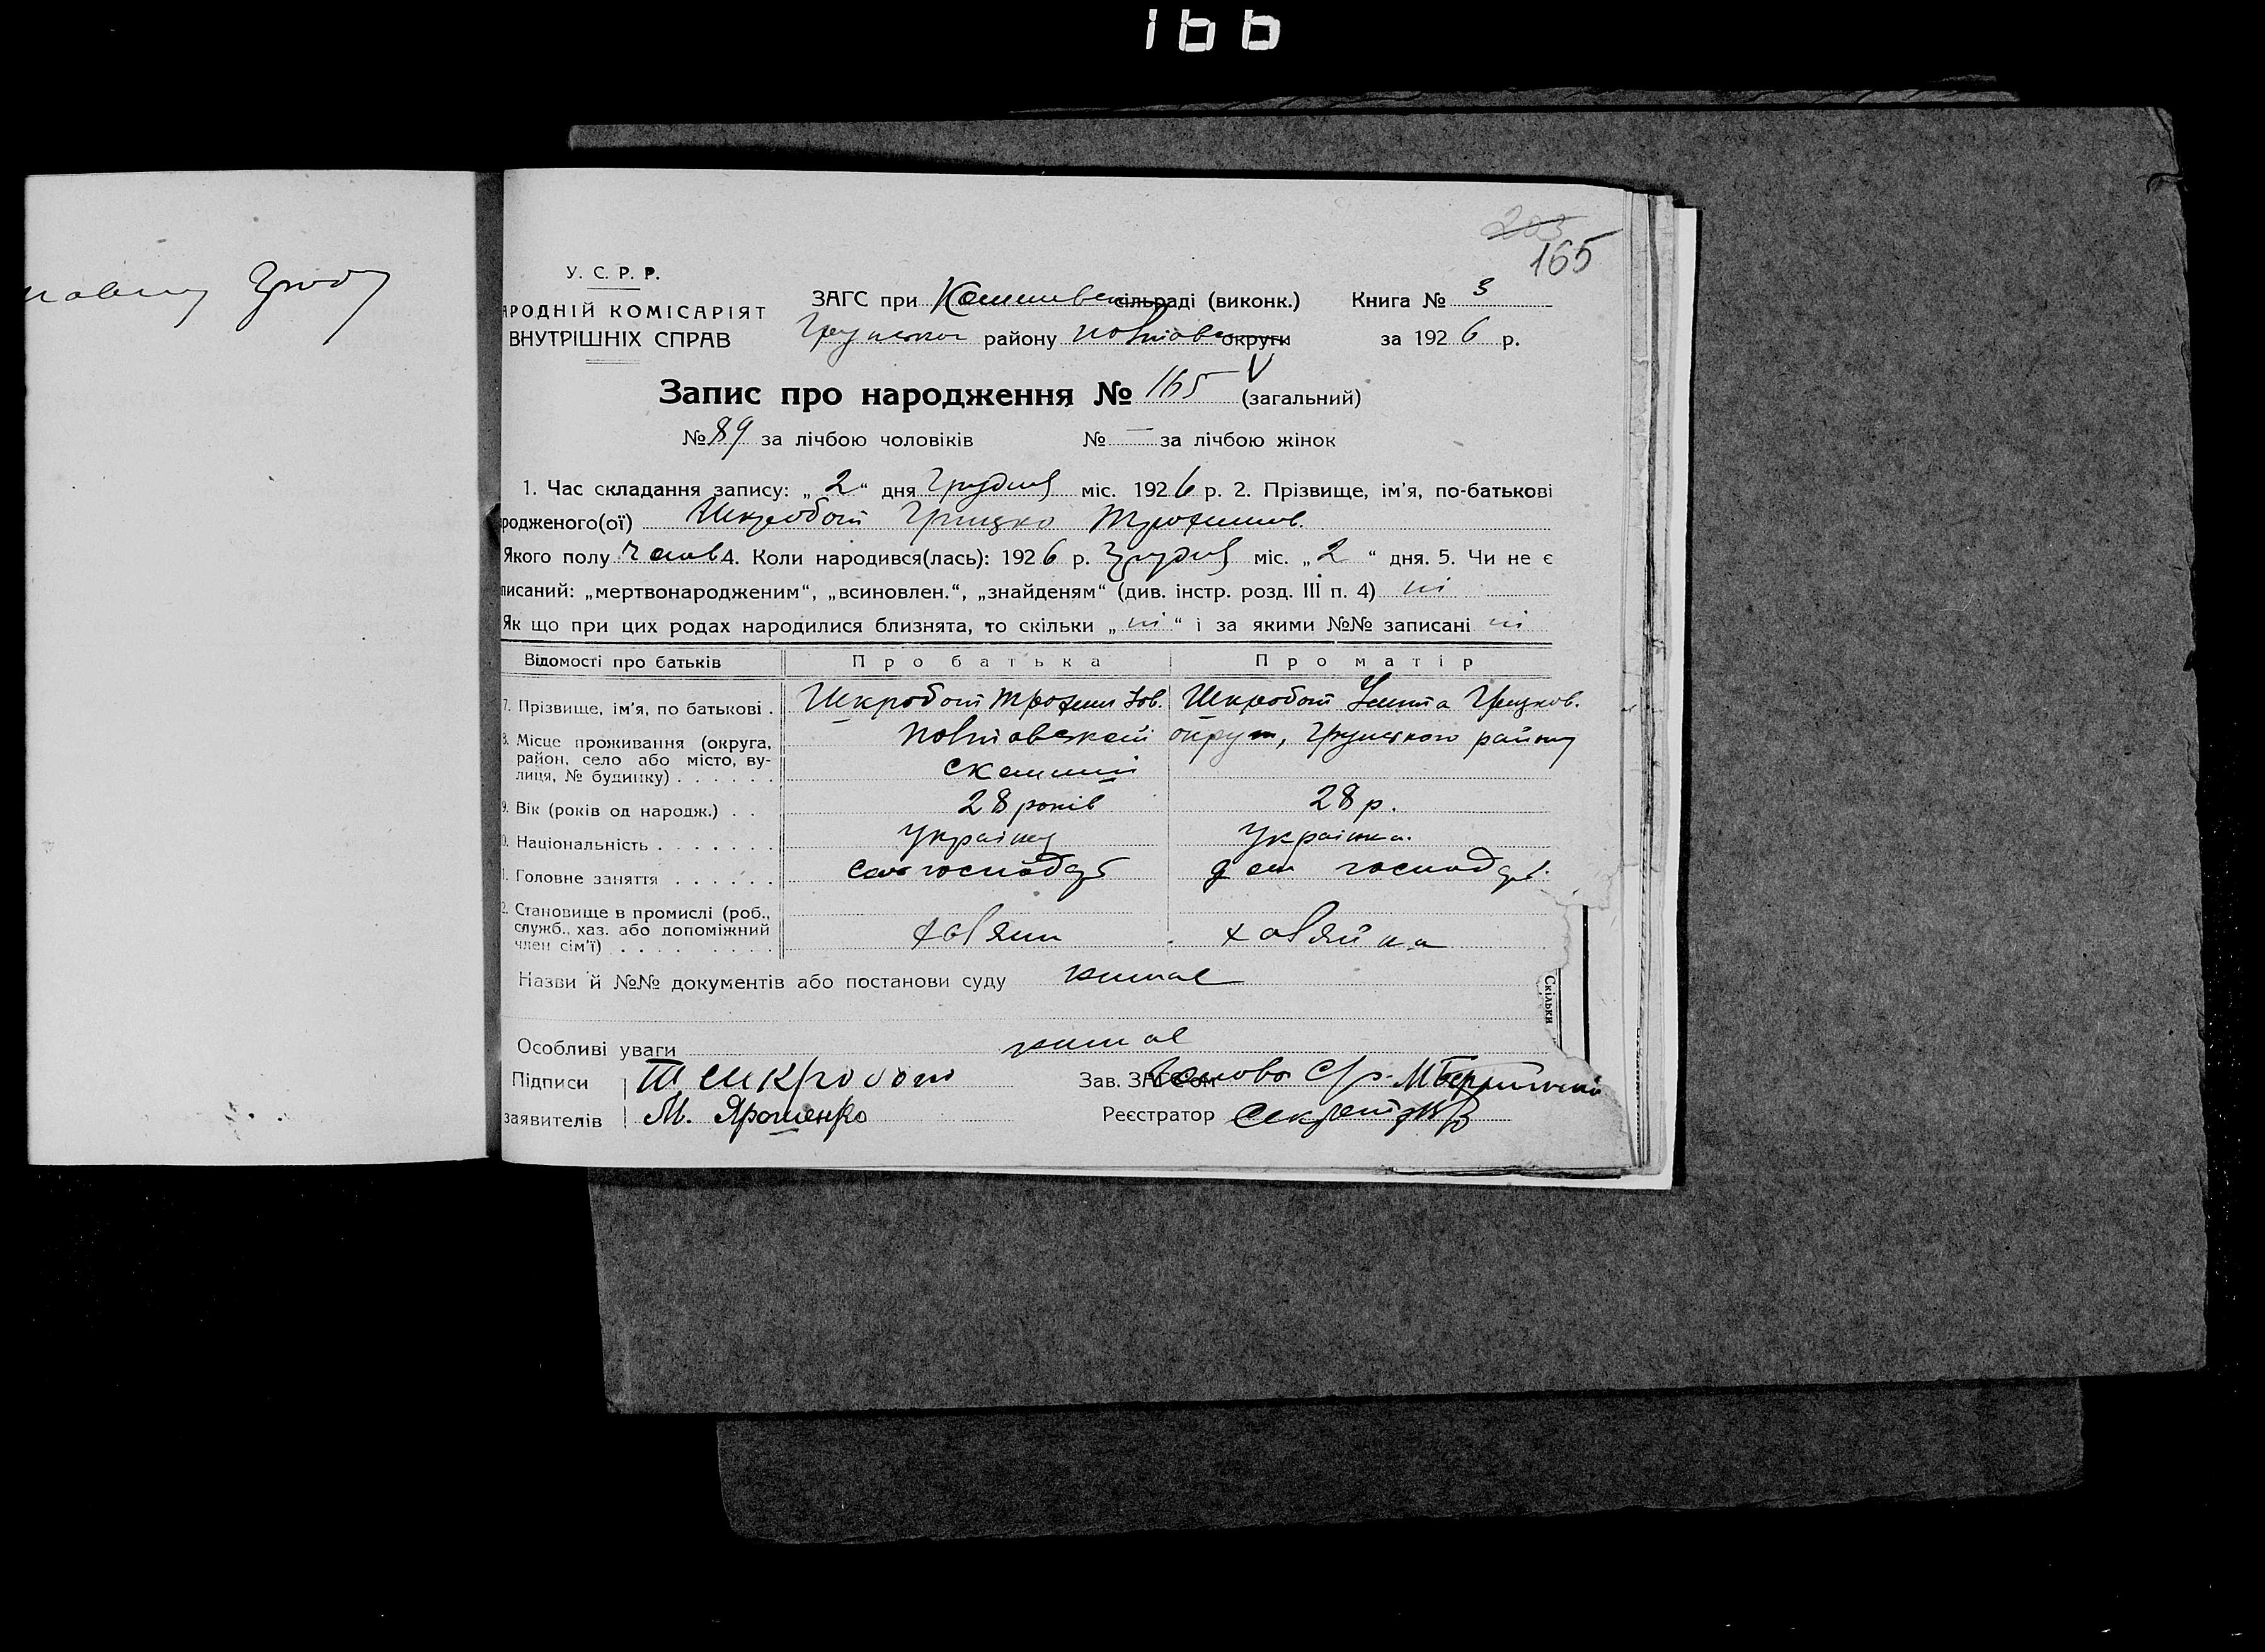 166
203
165
У. С. Р. Р.
АРОДНІЙ КОМІСАРІЯТ
ВНУТРІШНІХ СПРАВ
ЗАГС при сільраді (виконк.) Книга № 3
району округи за 1926 р.
Запис про народження № 165 (загальний)
№ 89 за лічбою чоловіків № — за лічбою жінок
1. Час складання запису: „2“ дня Грудня міс. 1926 р. 2. Прізвище, ім'я, по-батькові
родженого(ої) Шкробот Грицко Трохимов.
Якого полу 4. Коли народився(лась): 1926 р. Грудня міс. „2“ дня. 5. Чи не є
писаний: „мертвонародженим“, „всиновлен.“, „знайденям“ (див. інстр. розд. III п. 4) ні
Як що при цих родах народилися близнята, то скільки „ні“ і за якими №№ записані ні
Відомості про батьків Про батька Про матір
7. Прізвище, ім'я, по батькові . Шкробот Трохим Шкробот Грицков.
8. Місце проживання (округа, район, село або місто, вулиця, № будинку) . . . . . Полтавської округи, Грунського району
9. Вік (років од народж.) . . 28 років 28 р.
0. Національність . . . . . . . Українец Українка.
1. Головне заняття . . . . . . господар господар.
2. Становище в промислі (роб., служб., хаз. або допоміжний член сім'ї) . . . . . . . . хазяин хазяйка
Назви й №№ документів або постанови суду немає
Скільки
Особливі уваги немає
Підписи Т Шкробот Зав. ЗАГСом Голова С/р. М
заявителів М. Ярошенко Реєстратор Секретарь